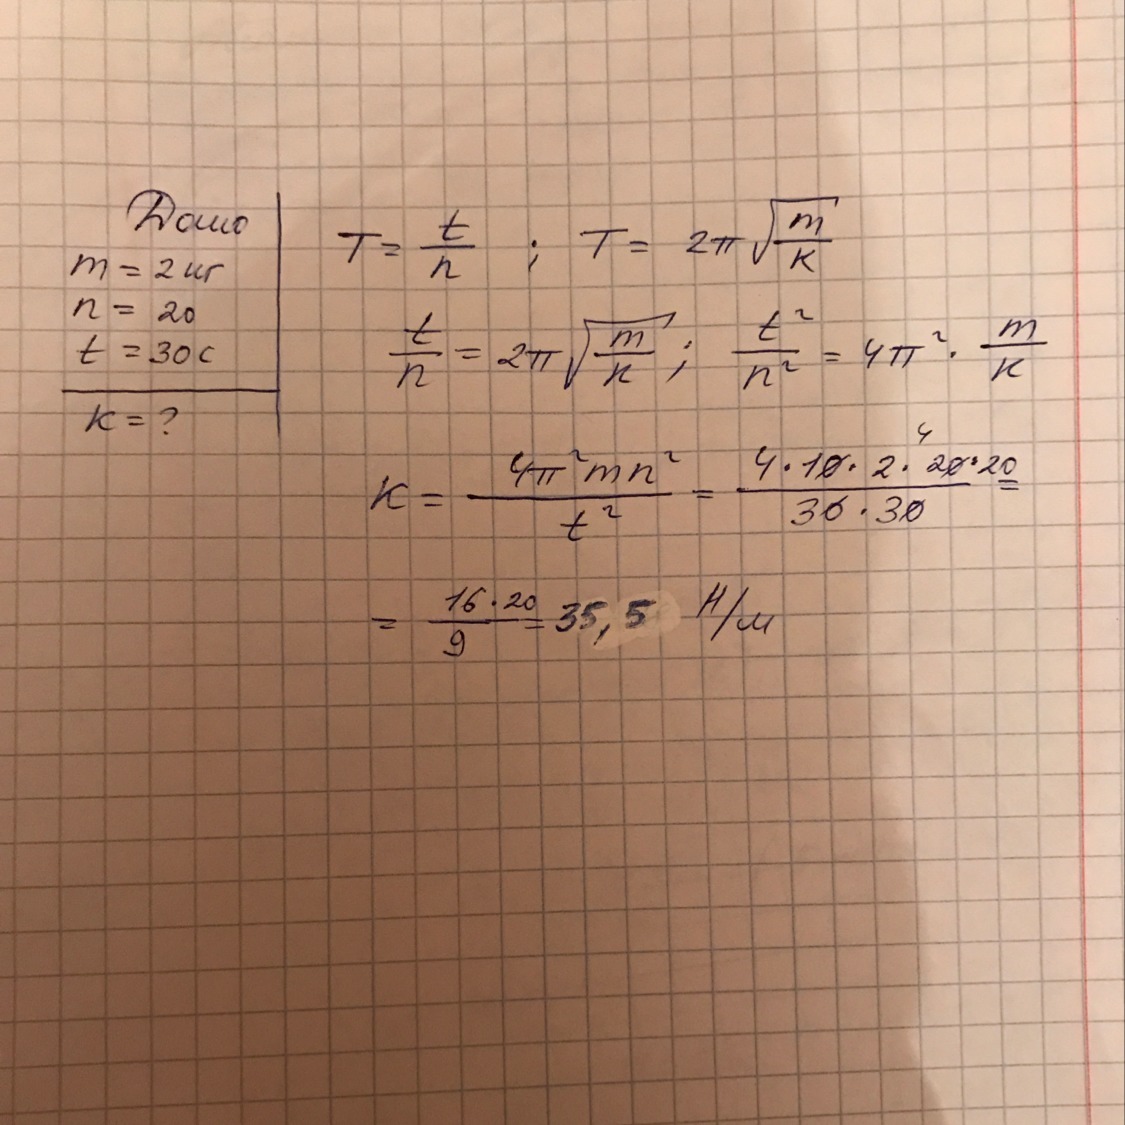 Дано
m = 2 кг
n = 20
t = 30 с
K = ?
T = t/n ; T = 2π√(m/k)
t/n = 2π√(m/k) ; t²/n² = 4π² · m/k
K = 4π²mn²/t² = 4·10·2·20·20/30·30 =
4
= 16·20/9 = 35,5 Н/м